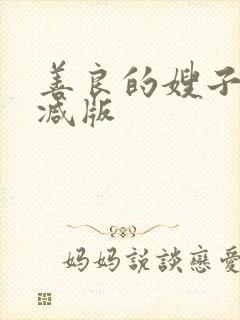 善良的嫂子
减版
妈妈説談戀愛